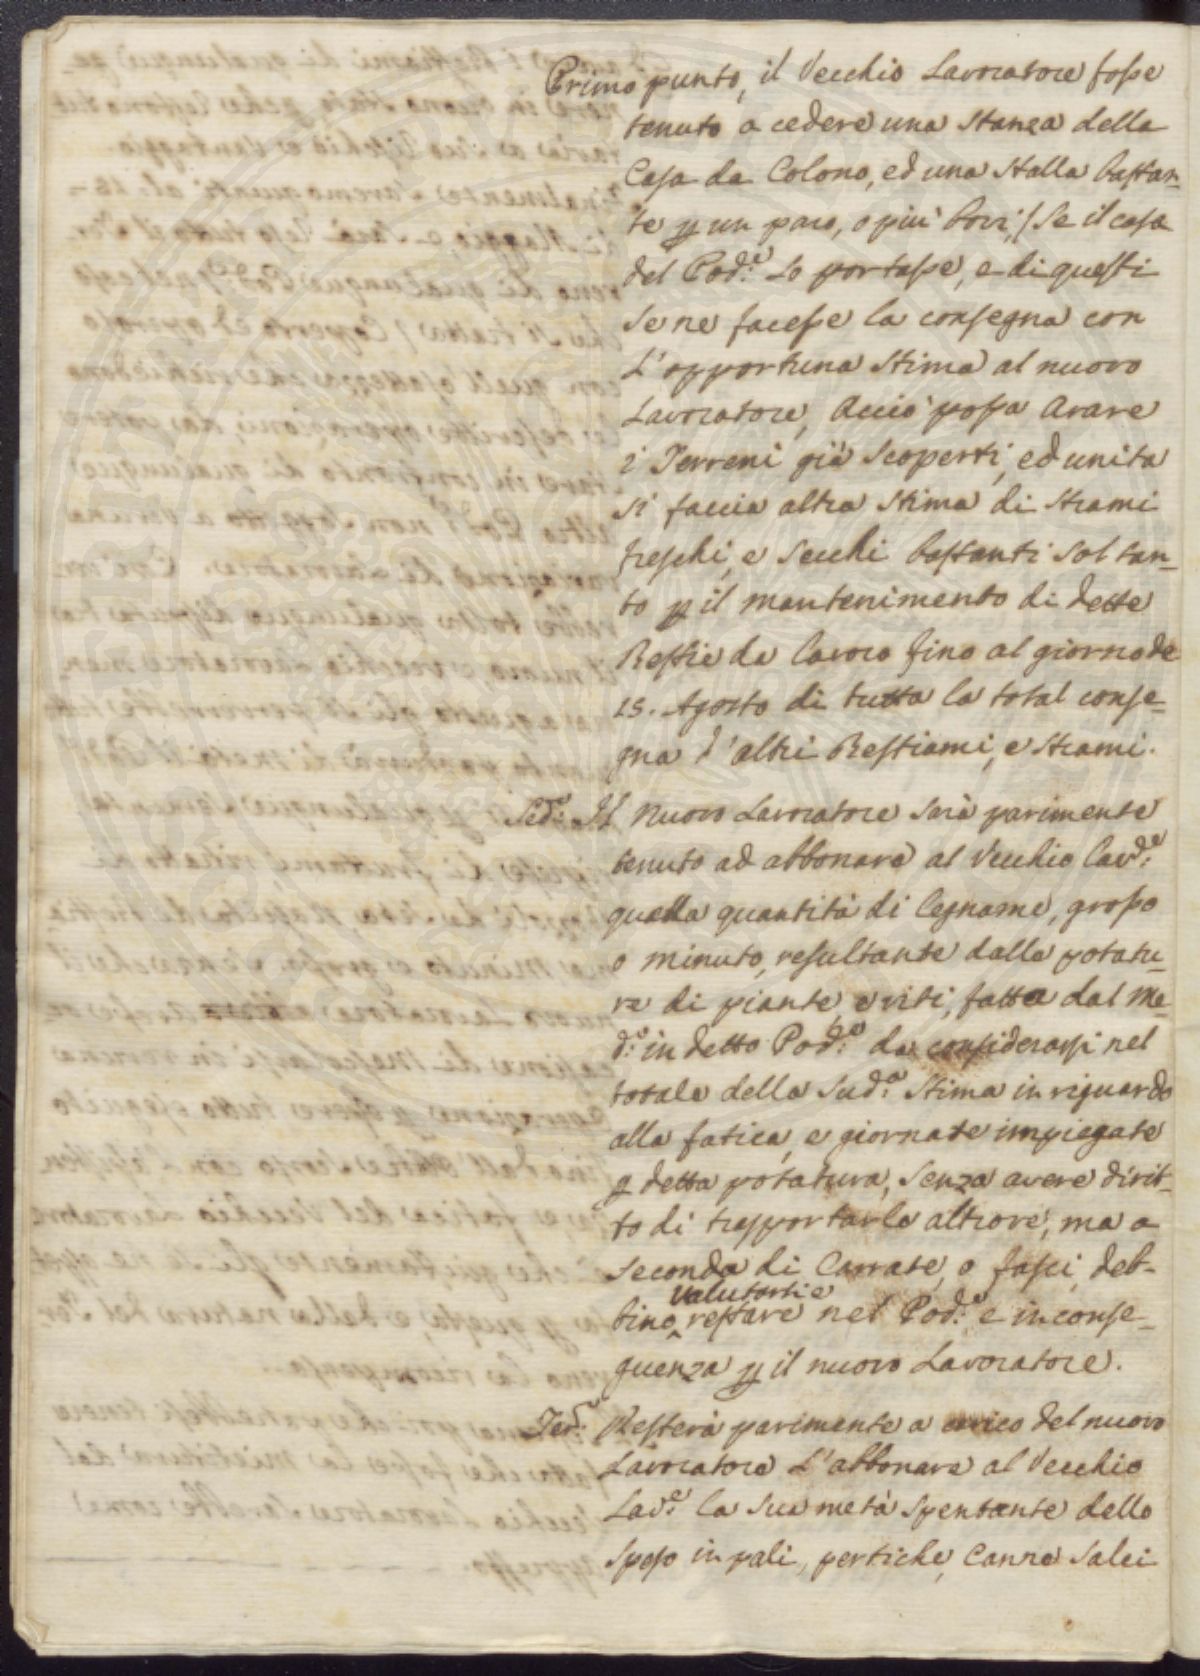 Primo punto, il Vecchio Lavoratore fosse
tenuto a cedere una stanza della
Casa da Colono, ed una stalla bastan-
te p un paro, o più bovi, / se il caso
del Pod.e lo portasse, e di questi
se ne facesse la consegna con
l'opportuna stima al nuovo
Lavoratore, acciò possa arare
i Terreni già scoperti, ed unita
si faccia altra stima di strami
freschi, e secchi bastanti soltan-
to p il mantenimento di dette
Bestie da lavoro fino al giorno de
15. Agosto di tutta la total conse-
gna d'altri Bestiami, e strami.
Sed.o Il nuovo Lavoratore sarà parimente
tenuto ad abbonare al Vecchio Lav.e
quella quantità di legname, grosso
o minuto, resultante dalla potatu-
ra di piante, e viti, fatta dal Me-
d.o in detto Pod.e da considerarsi nel
totale della Sud.a stima in riguardo
alla fatica, e giornate impiegate
p detta potatura, senza avere dirit-
to di trasportarlo altrove, ma a
seconda di Carrate, o fasci, deb-
valutarsi e
bino restare nel Pod.e e in conse-
guenza p il nuovo Lavoratore.
Ter.o Resterà parimente a carico del nuovo
Lavoratore l'abbonare al Vecchio
Lav.e la sua metà spentante dello
speso in pali, pertiche, Canne salci